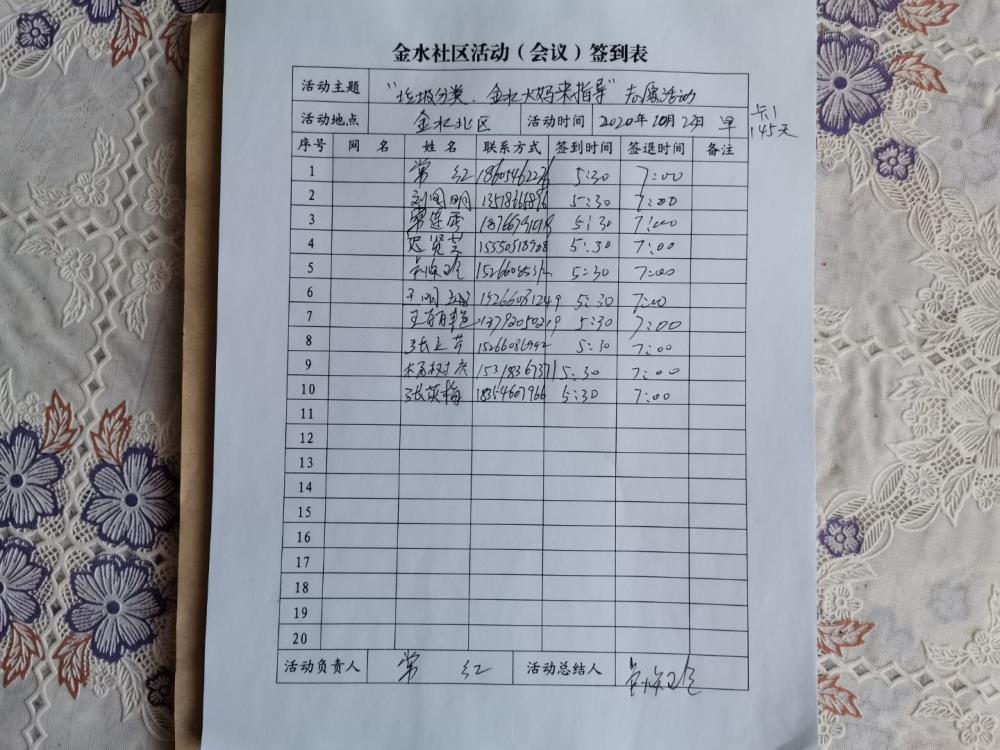 金水社区活动（会议）签到表
活动主题 “垃圾分类、金水大妈来指导”志愿活动
活动地点 金水北区 活动时间 2020年10月24日 早
145天
序号 网 名 姓 名 联系方式 签到时间 签退时间 备注
1 常 红 5:30 7:00
2 刘国明 5:30 7:00
3 常连云 5:30 7:00
4 迟贤芝 15550518708 5:30 7:00
5 5:30 7:00
6 15266031249 5:30 7:00
7 13792050219 5:30 7:00
8 张立芳 15266086992 5:30 7:00
9 杨树庆 15318367371 5:30 7:00
10 张英梅 18354607966 5:30 7:00
11
12
13
14
15
16
17
18
19
20
活动负责人 常 红 活动总结人